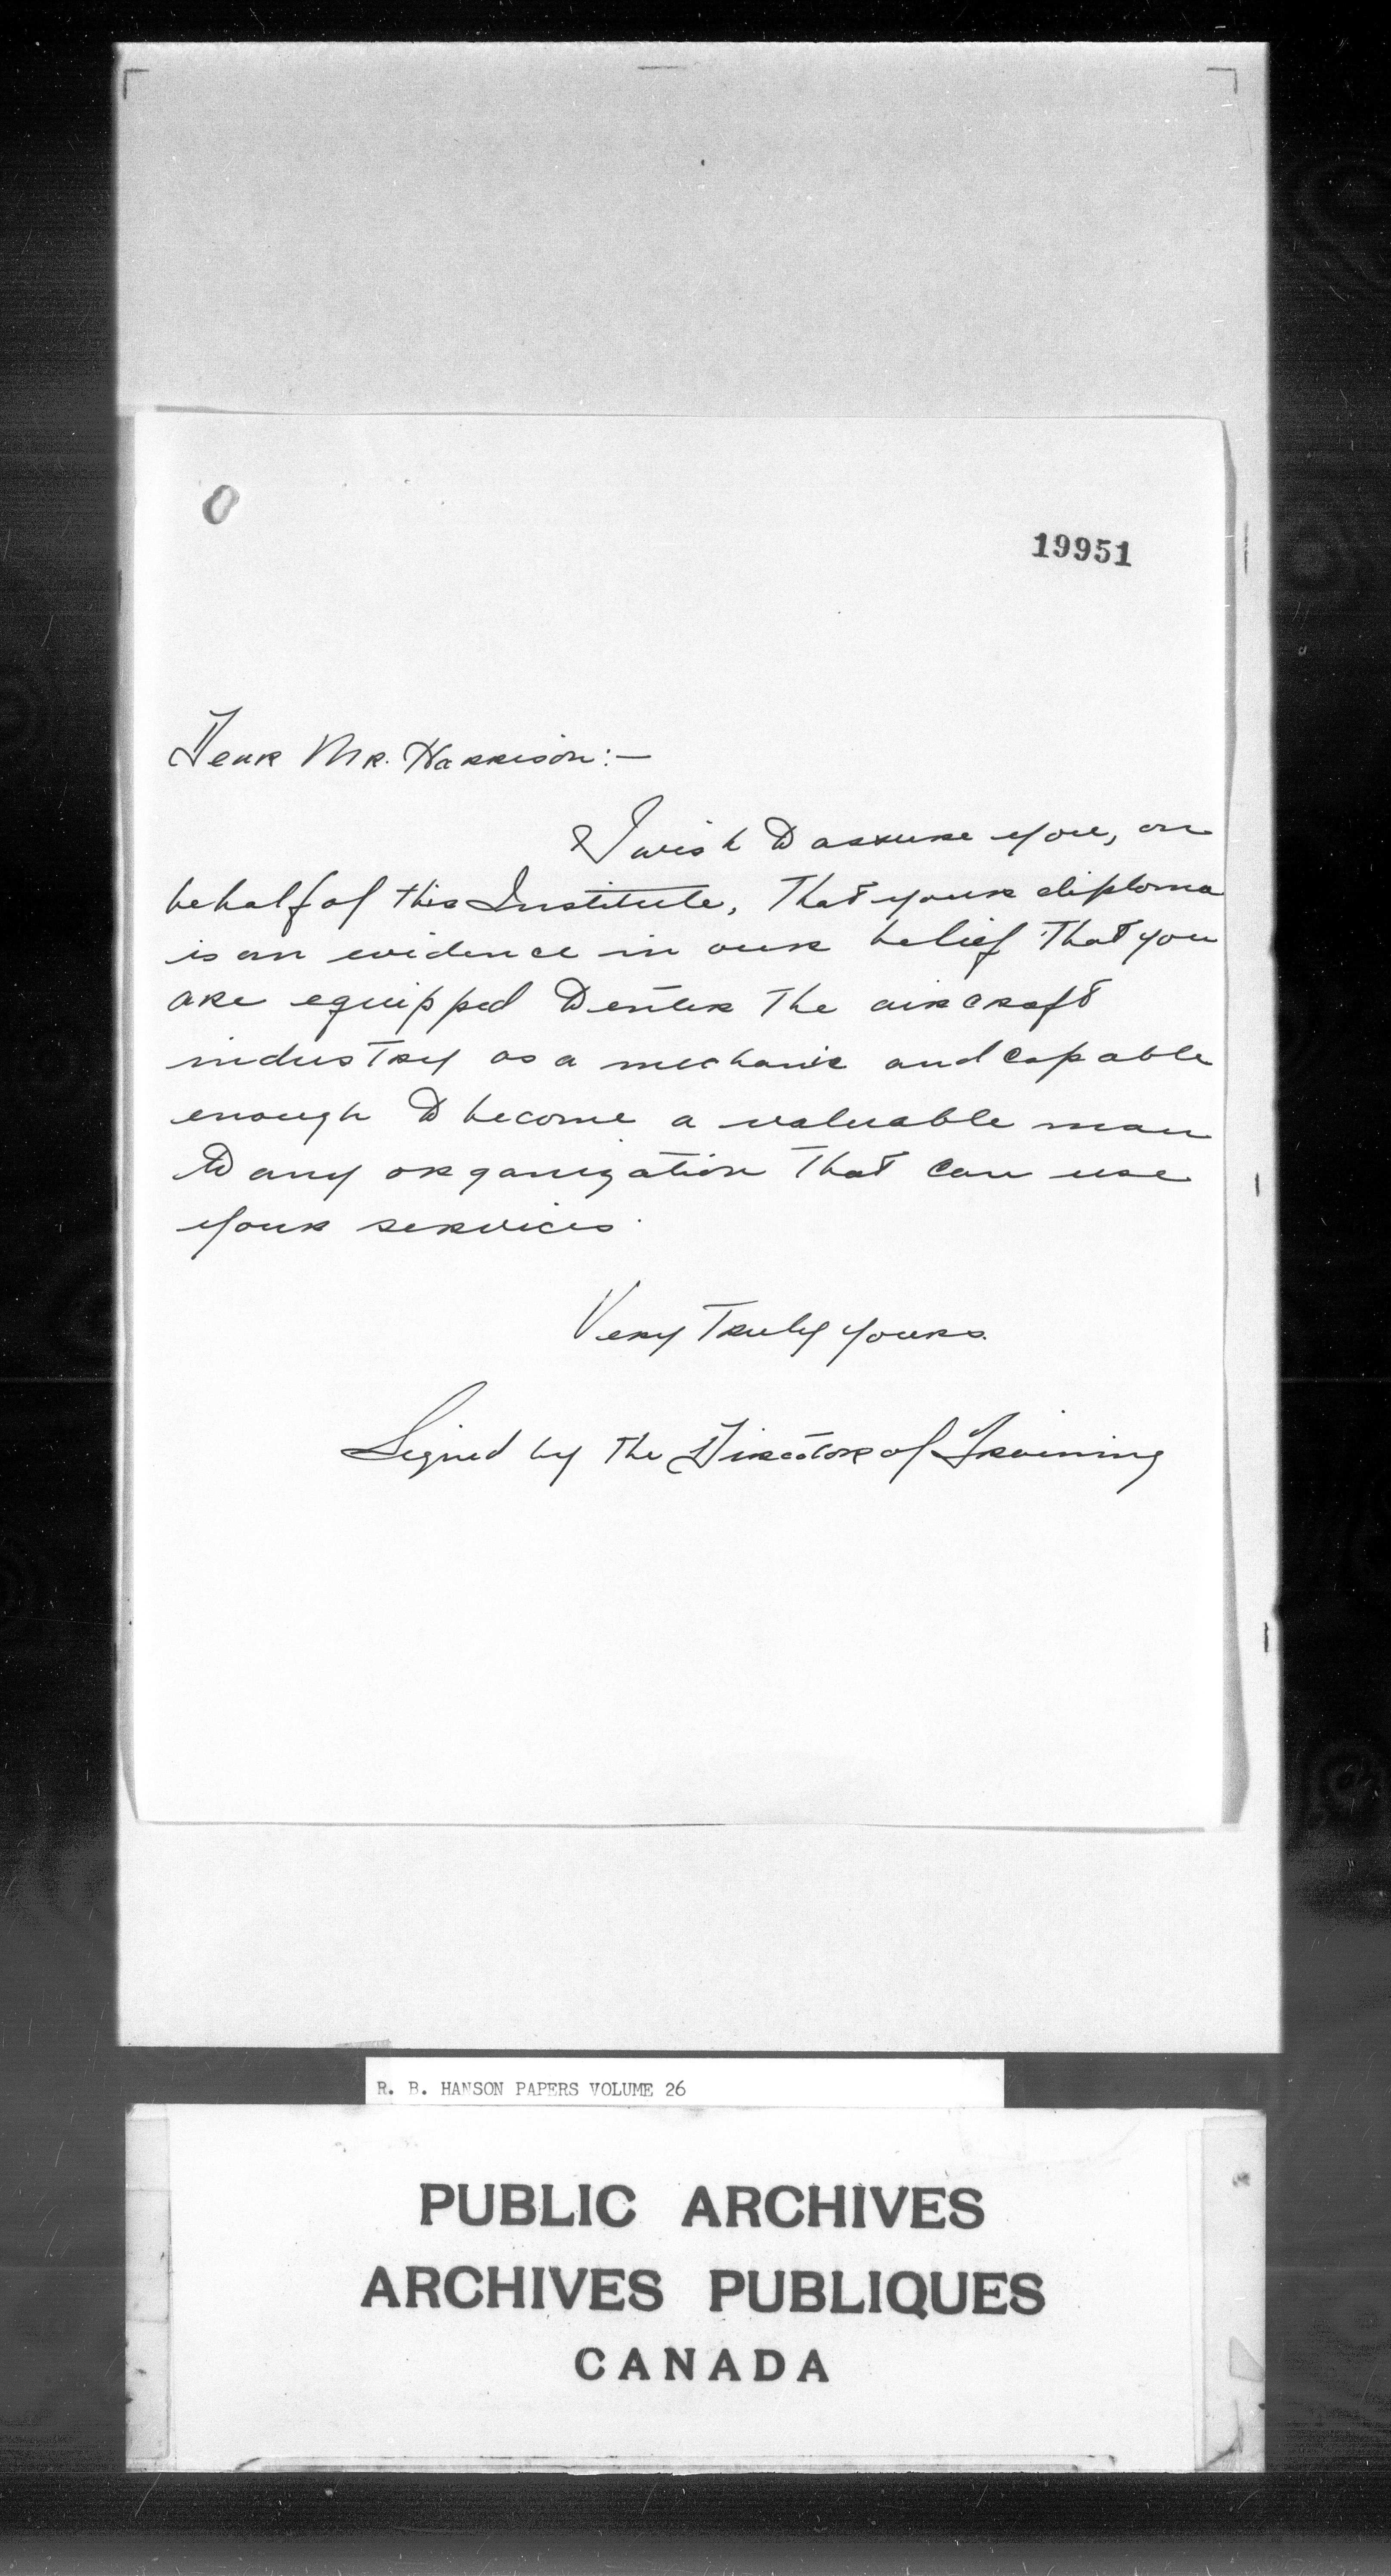 19951
Dear Mr. Harrison:-
I wish to assure you, on
behalf of this Institute, that your diploma
is an evidence in our belief that you
are equipped to enter the aircraft
industry as a mechanic and capable
enough to become a valuable man
to any organization that can use
your services.
Very Truly yours.
Signed by the Director of Training
R. B. HANSON PAPERS VOLUME 26
PUBLIC ARCHIVES
ARCHIVES PUBLIQUES
CANADA